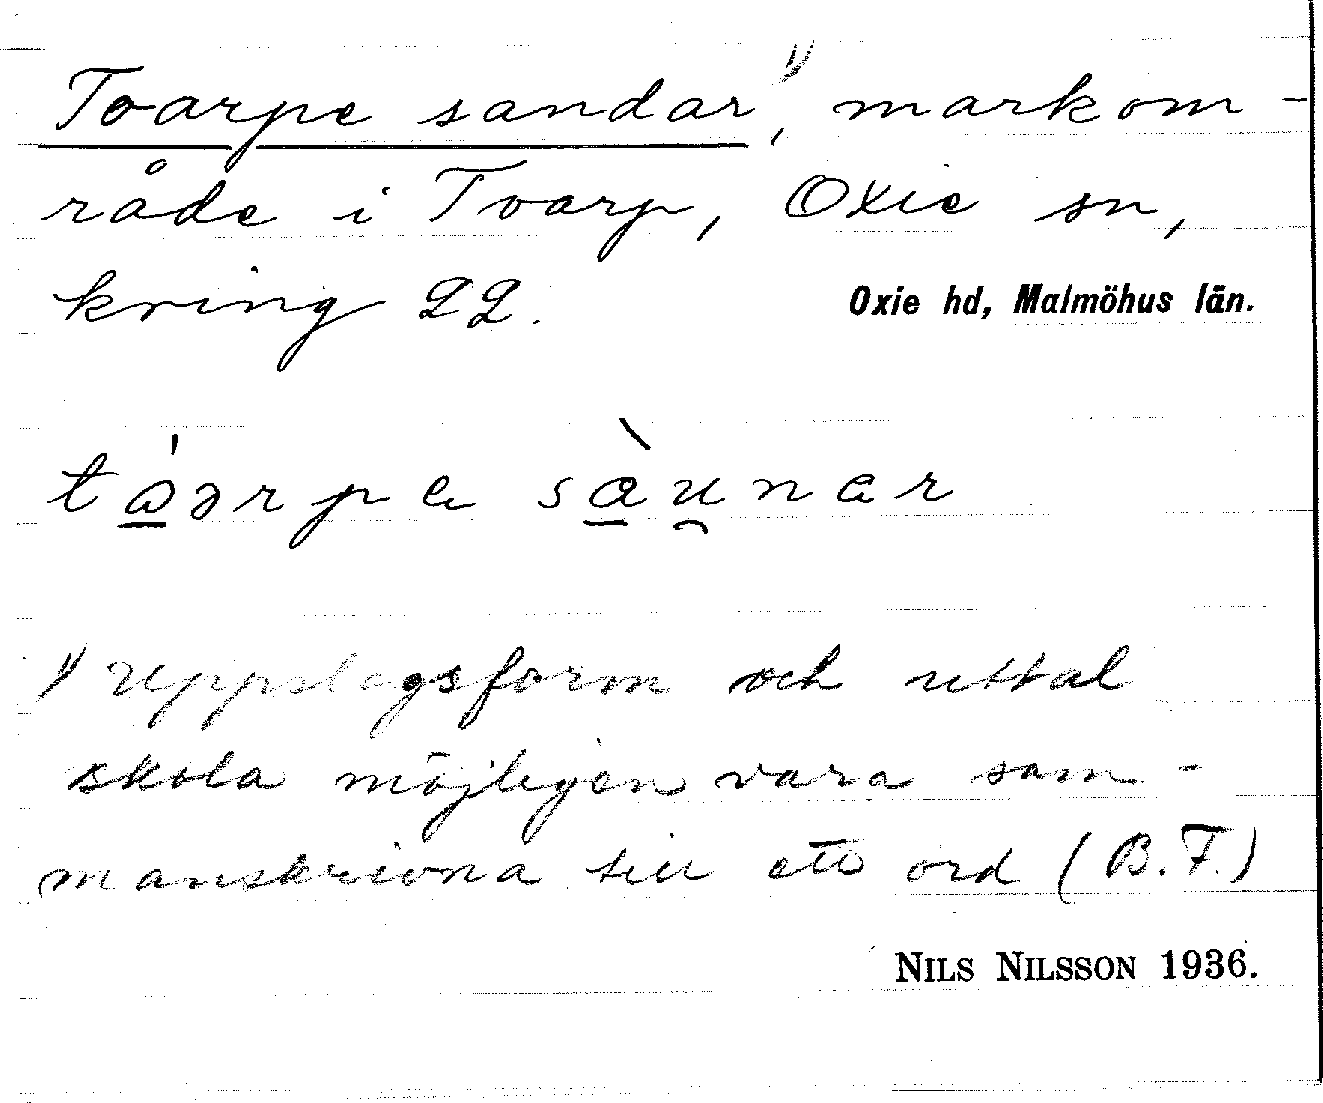 Toarpe sandar¹⁾, markom-
råde i Toarp, Oxie sn,
kring 22.
Oxie hd, Malmöhus län.
tɷ́ərpa sàu̯nar
1) Uppslagsform och uttal
skola möjligen vara sam-
manskrivna till ett ord (B.F.)
NILS NILSSON 1936.